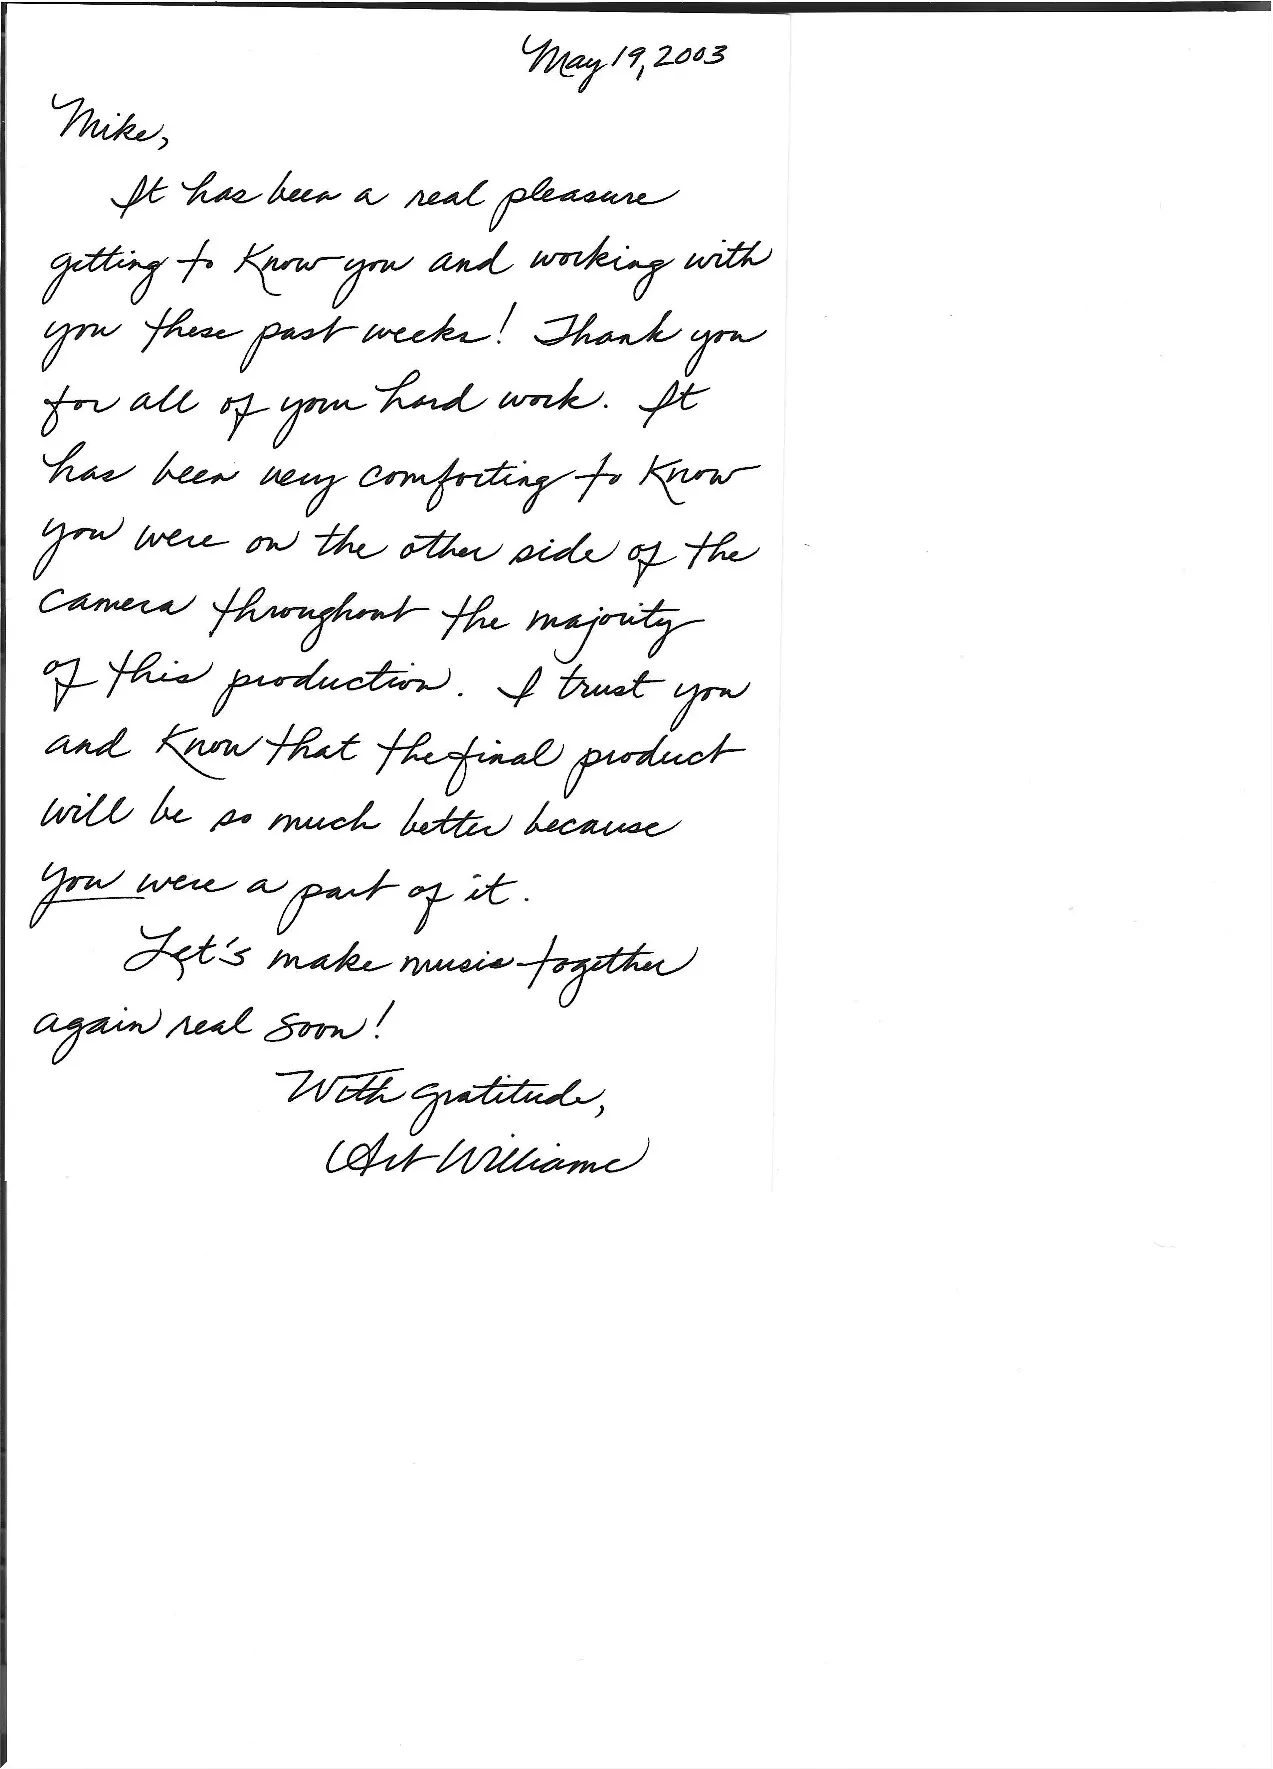 May 19, 2003
Mike,
It has been a real pleasure
getting to know you and working with
you these past weeks! Thank you
for all of your hard work. It
has been very comforting to know
you were on the other side of the
camera throughout the majority
of this production. I trust you
and know that the final product
will be so much better because
you were a part of it.
Let's make music together
again real soon!
With gratitude,
Art Williams